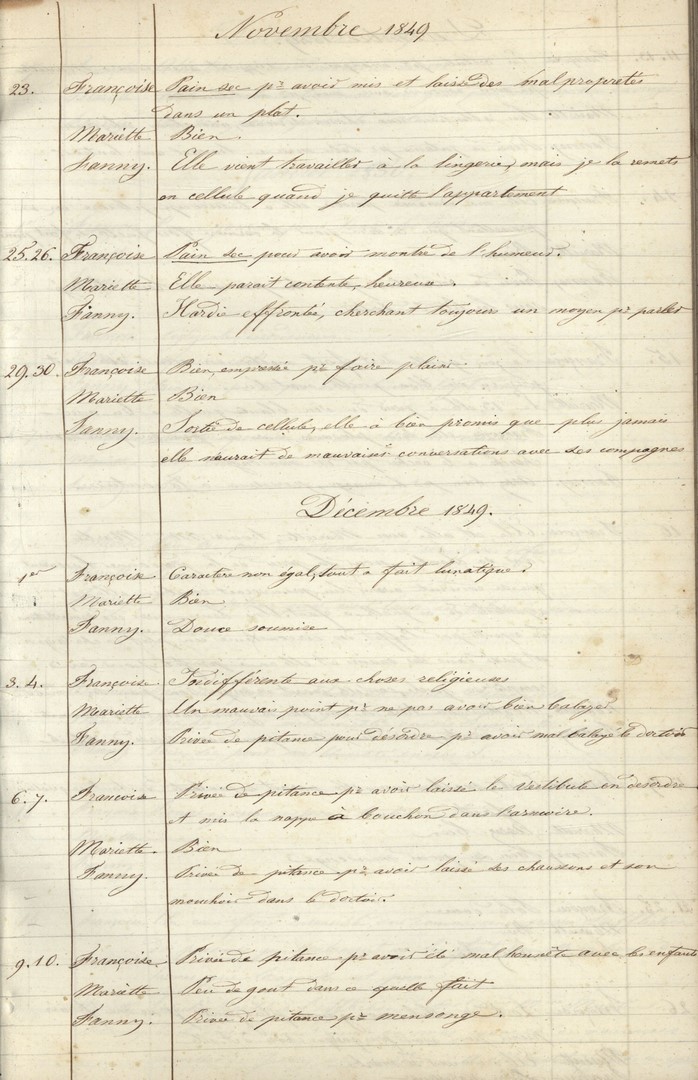 Novembre 1849
23. Françoise Pain sec pr avoir mis et laissé des malpropretés
dans un plat.
Mariette Bien.
Fanny. Elle vient travailler à la lingerie, mais je la remets
en cellule quand je quitte l'appartement
25.26. Françoise Pain sec pour avoir montré de l'humeur.
Mariette Elle parait contente, heureuse.
Fanny. Hardie effrontée, cherchant toujours un moyen pr parler
29.30. Françoise Bien, empressée pr faire plaisir
Mariette Bien
Fanny. Sortie de cellule, elle a bien promis que plus jamais
elle n'aurait de mauvaises conversations avec ses compagnes
Décembre 1849.
1er Françoise Caractère non égal, tout a fait lunatique.
Mariette Bien
Fanny. Douce soumise
3.4. Françoise Indifférente aux choses religieuses
Mariette Un mauvais point pr ne pas avoir bien balayé
Fanny. Privée de pitance pour désordre pr avoir mal balayé le dortoir
6.7. Françoise Privée de pitance pr avoir laissé le vestibule en désordre
et mis la nappe à bouchon dans l'armoire.
Mariette. Bien
Fanny. Privée de pitance pr avoir laissé ses chaussons et son
mouchoir dans le dortoir.
9.10. Françoise. Privée de pitance pr avoir été mal honnête avec les enfants
Mariette Peu de gout dans ce quelle fait
Fanny. Privée de pitance pr mensonge.